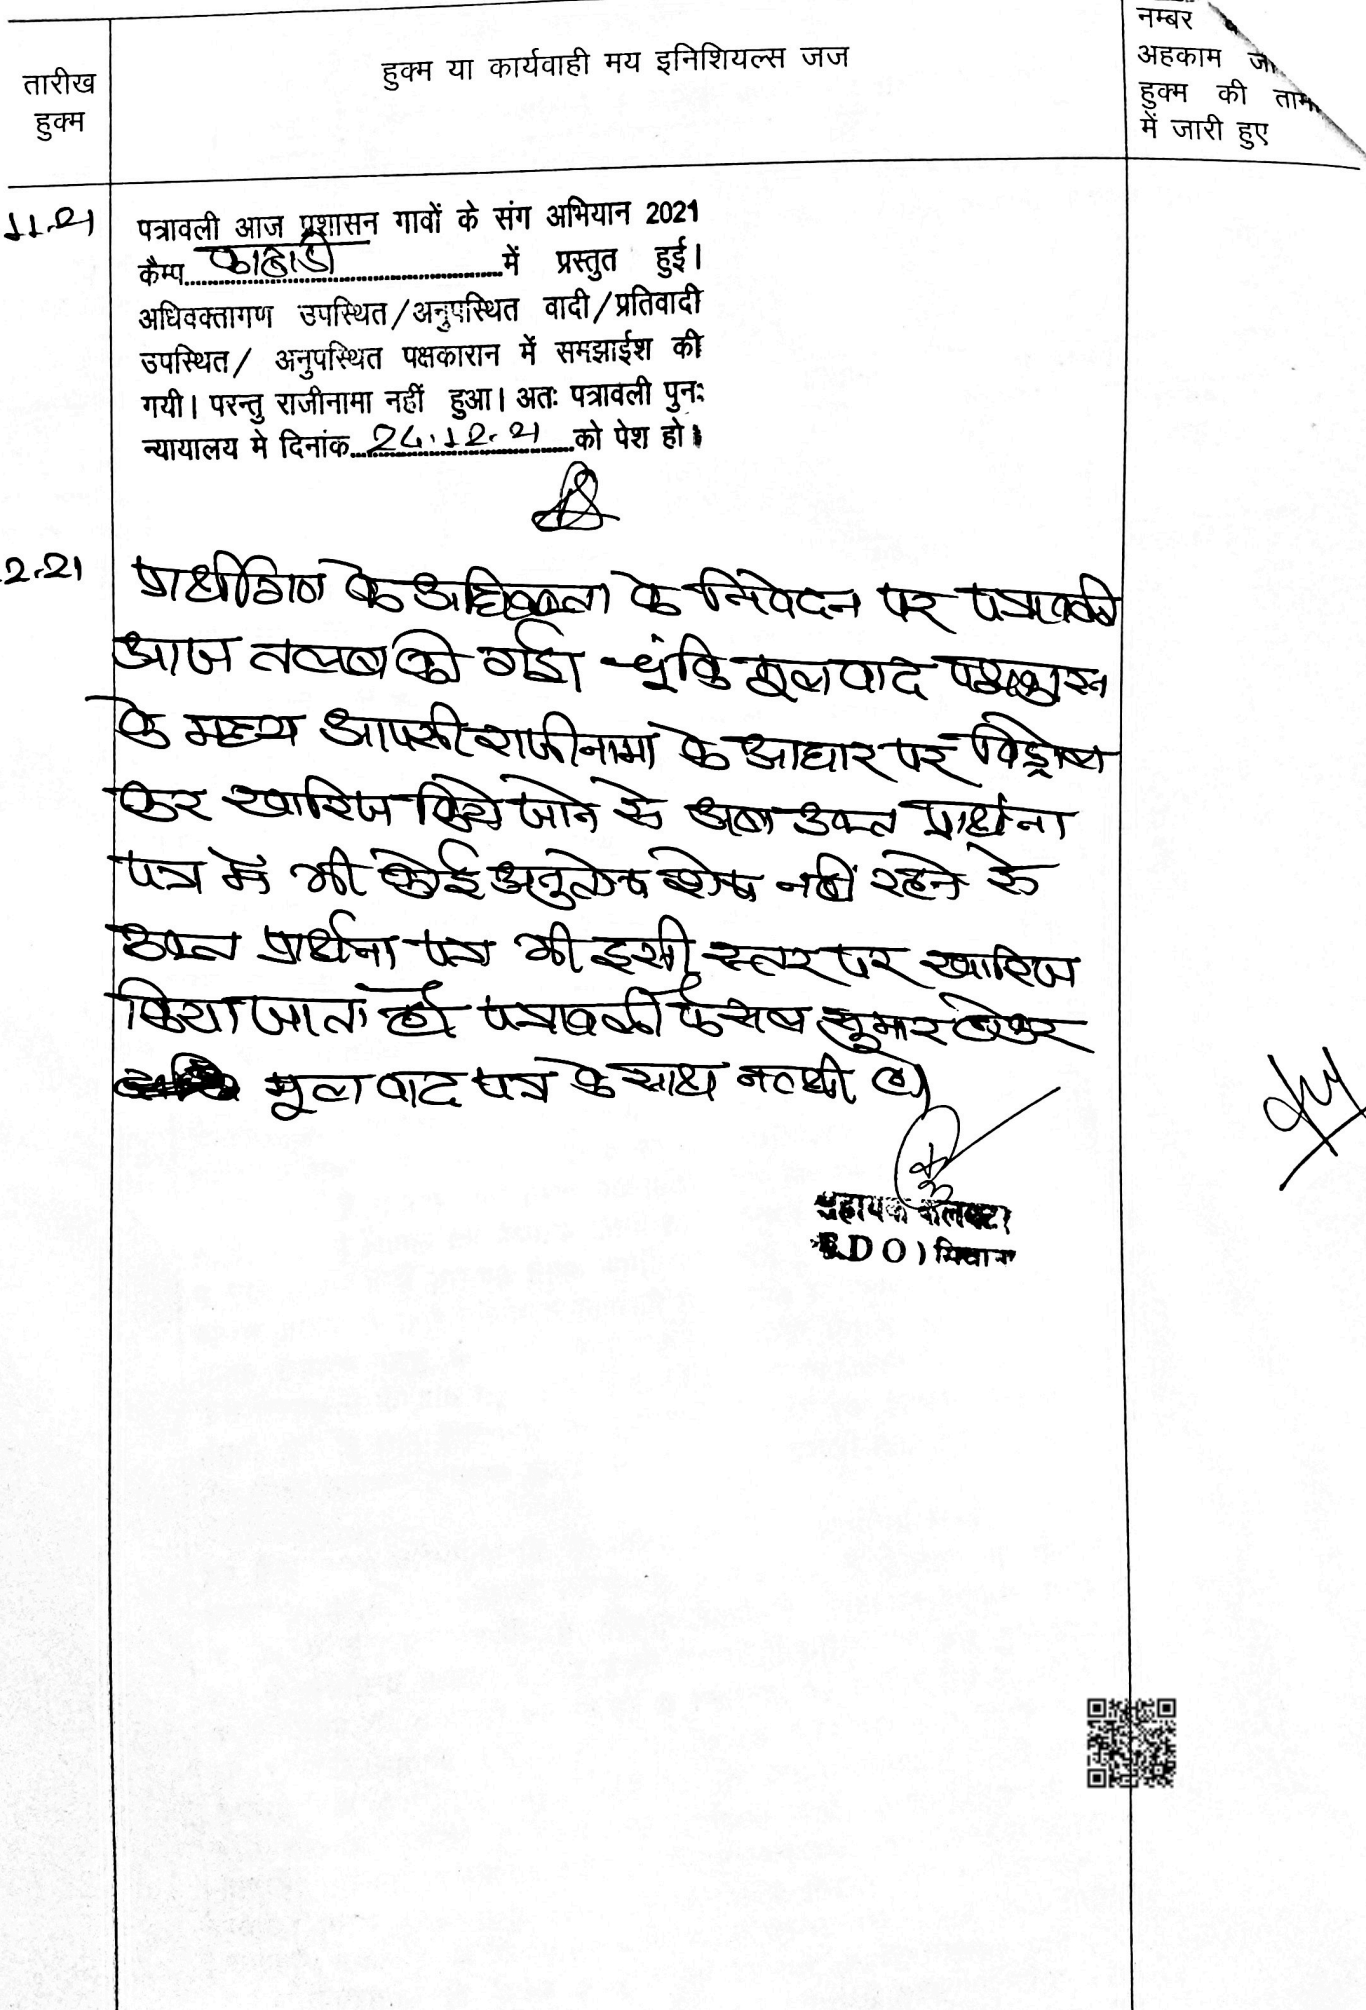 तारीख
हुक्म
हुक्म या कार्यवाही मय इनिशियल्स जज
नम्बर
अहकाम जा
हुक्म की ताम
में जारी हुए
11.21
पत्रावली आज प्रशासन गावों के संग अभियान 2021
कैम्प.......................में प्रस्तुत हुई।
अधिवक्तागण उपस्थित/अनुपस्थित वादी/प्रतिवादी
उपस्थित/ अनुपस्थित पक्षकारान में समझाईश की
गयी। परन्तु राजीनामा नहीं हुआ। अतः पत्रावली पुनः
न्यायालय मे दिनांक..24.12.21..को पेश हो।
2.21
प्रार्थीगण के अधिवक्ता के निवेदन पर पत्रावली
आज तलब की गई। चूंकि मूल वाद पक्षकारान
के मध्य आपसी राजीनामा के आधार पर विड्रोल
कर खारिज किये जाने से अब उक्त प्रार्थना
पत्र में भी कोई अनुतोष शेष नहीं रहने से
उक्त प्रार्थना पत्र भी इसी स्तर पर खारिज
किया जाता है। पत्रावली फैसल शुमार होकर
मूल वाद पत्र के साथ नत्थी हो।
सहायक कलक्टर
(SDO)